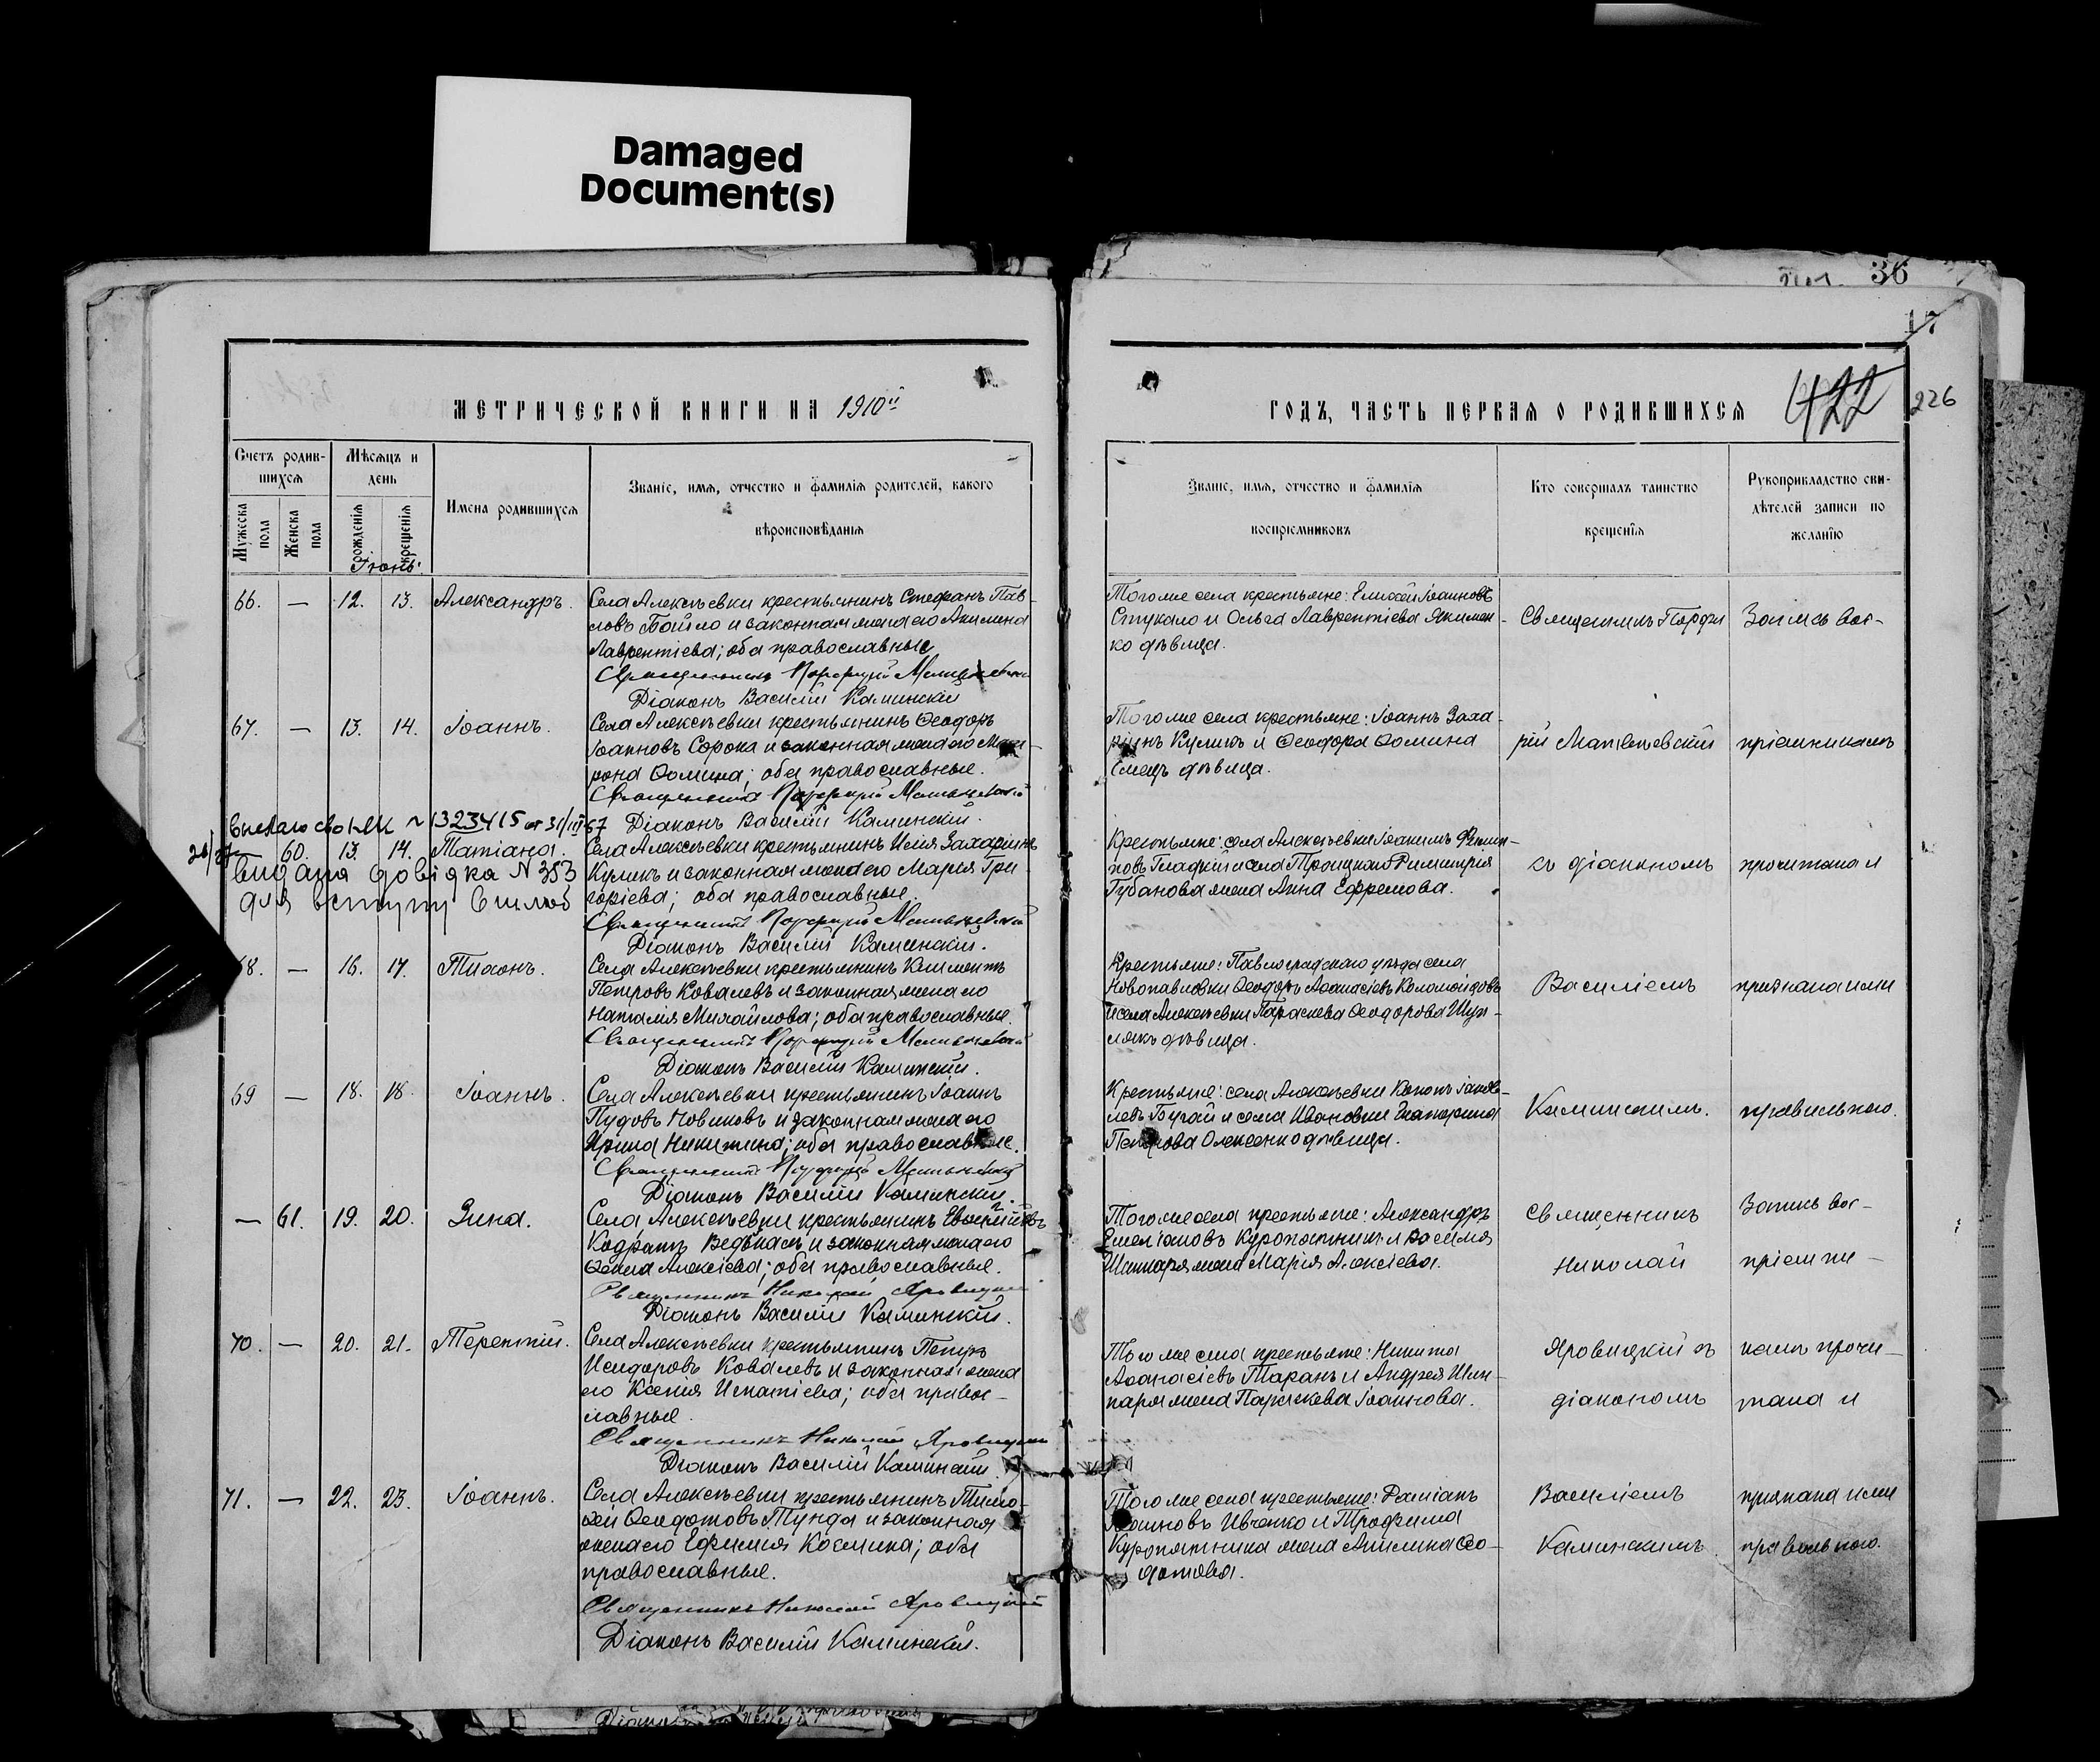 Damaged
Document(s)
36
17
МЕТРИЧЕСКОЙ КНИГИ НА 1910й
ГОДЪ, ЧАСТЬ ПЕРВАЯ О РОДИВШИХСЯ
422
226
Счетъ родив-
шихся
Мѣсяцъ и
день
Имена родившихся
Званіе, имя, отчество и фамилія родителей, какого
вѣроисповѣданія
Мужеска
пола
Женска
пола
рожденія
крещенія
Званіе, имя, отчество и фамилія
воспріемниковъ
Кто совершалъ таинство
крещенія
Рукоприкладство сви-
дѣтелей записи по
желанію
Іюнь.
66. — 12. 13. Александръ.
Села Алексѣевки крестьянинъ Стефанъ Пав-
ловъ Бойло и законная жена его Акилина
Лаврентіева; оба православные
Священникъ Порфирій
Діаконъ Василій Каминскій
Того же села крестьяне: Елисей Іоанновъ
Стукало и Ольга Лаврентіева Якимен-
ко дѣвица.
Священникъ Порфи
Запись вос-
67. — 13. 14. Іоаннъ.
Села Алексѣевки крестьянинъ Ѳеодоръ
Іоанновъ Сорока и законная жена его Мат-
рона Ѳомина; оба православные.
Священникъ Порфирій
Діаконъ Василій Каминскій.
Того же села крестьяне: Іоаннъ Заха-
ріинъ Куликъ и Ѳеодора Ѳомина
дѣвица.
рій
пріемникамъ
~ 1323415 от 31/III 67
60. 13. 14. Татіана.
видана довідка N 353
для вступу в шлюб
Села Алексѣевки крестьянинъ Илія Захаріинъ
Куликъ и законная жена его Марія Гри-
горіева; оба православные.
Священникъ Порфирій
Діаконъ Василій Каминскій.
Крестьяне: села Алексѣевки Іоакимъ Филип-
повъ Гладкій и села Троицкаго Димитрія
Губанова жена Анна Ефремова.
съ діакономъ
прочитана и
68. — 16. 17. Тихонъ.
Села Алексѣевки крестьянинъ Климентъ
Петровъ Ковалевъ и законная жена его
Наталія Михайлова; оба православные.
Священникъ Порфирій
Діаконъ Василій Каминскій.
Крестьяне: Павлоградскаго уѣзда села
Новопавловки Ѳеодоръ Аѳанасіевъ Коломойцовъ
и села Алексѣевки Параскева Ѳеодорова Шул-
дѣвица.
Василіемъ
признана ими
69 — 18. 18. Іоаннъ.
Села Алексѣевки крестьянинъ Іоаннъ
Пудовъ Новиковъ и законная жена его
Ирина Никитина; оба православные.
Священникъ Порфирій
Діаконъ Василій Каминскій.
Крестьяне: села Алексѣевки Кононъ Іаков-
левъ Бугай и села Ивановки Екатерина
Петрова Олексенко дѣвица.
Каминскимъ.
правильною.
— 61. 19. 20. Зина.
Села Алексѣевки крестьянинъ
Кодратъ и законная жена его
Алексіева; оба православные.
Священникъ Николай Яровицкій
Діаконъ Василій Каминскій.
Того же села крестьяне: Александръ
Емеліановъ Куропятникъ и Василія
Шинкаря жена Марія Алексіева.
Священникъ
Николай
Запись вос-
пріемни-
70. — 20. 21. Терентій.
Села Алексѣевки крестьянинъ Петръ
Исидоровъ Ковалевъ и законная жена
его Ксенія Игнатіева; оба правос-
лавные.
Священникъ Николай Яровицкій
Діаконъ Василій Каминскій.
Того же села крестьяне: Никита
Аѳанасіевъ Таранъ и Андрея Шин-
каря жена Параскева Іоаннова.
Яровицкій съ
діакономъ
камъ прочи-
тана и
71. — 22. 23. Іоаннъ.
Села Алексѣевки крестьянинъ Тимо-
ѳей Ѳеодотовъ Тунда и законная
жена его Ефимія Космина; оба
православные.
Священникъ Николай Яровицкій
Діаконъ Василій Каминскій.
Того же села крестьяне: Даміанъ
Іоанновъ Ивченко и Трофима
Куропятника жена Акилина Ѳео-
дотова.
Василіемъ
Каминскимъ.
признана ими
правильною.